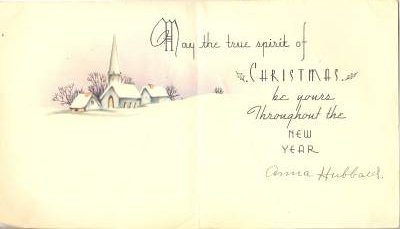 May the true spirit of
CHRISTMAS
be yours
Throughout the
NEW
YEAR
Anna Hubbard.